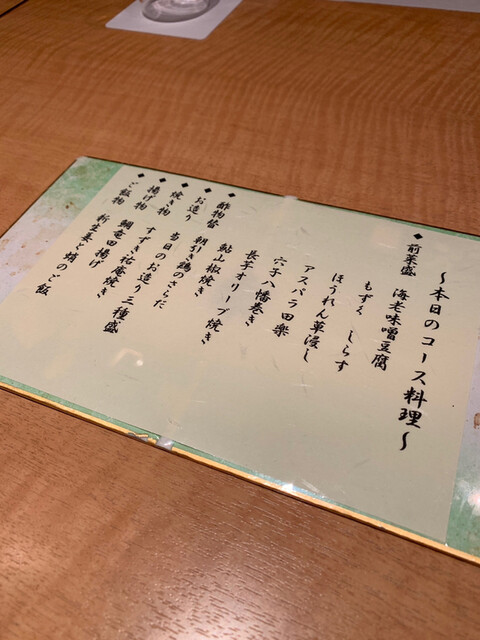 ~本日のコース料理~
◆前菜盛 海老味噌豆腐
もずく しらす
ほうれん草浸し
アスパラ田楽
穴子八幡巻き
長芋オリーブ焼き
鮎山椒焼き
◆酢物皆 朝引き鶏のさらだ
◆お造り 当日のお造り三種盛
◆焼き物 すずき祐庵焼き
◆揚げ物 鯛竜田揚げ
◆ご飯物 新生姜と蛸のご飯